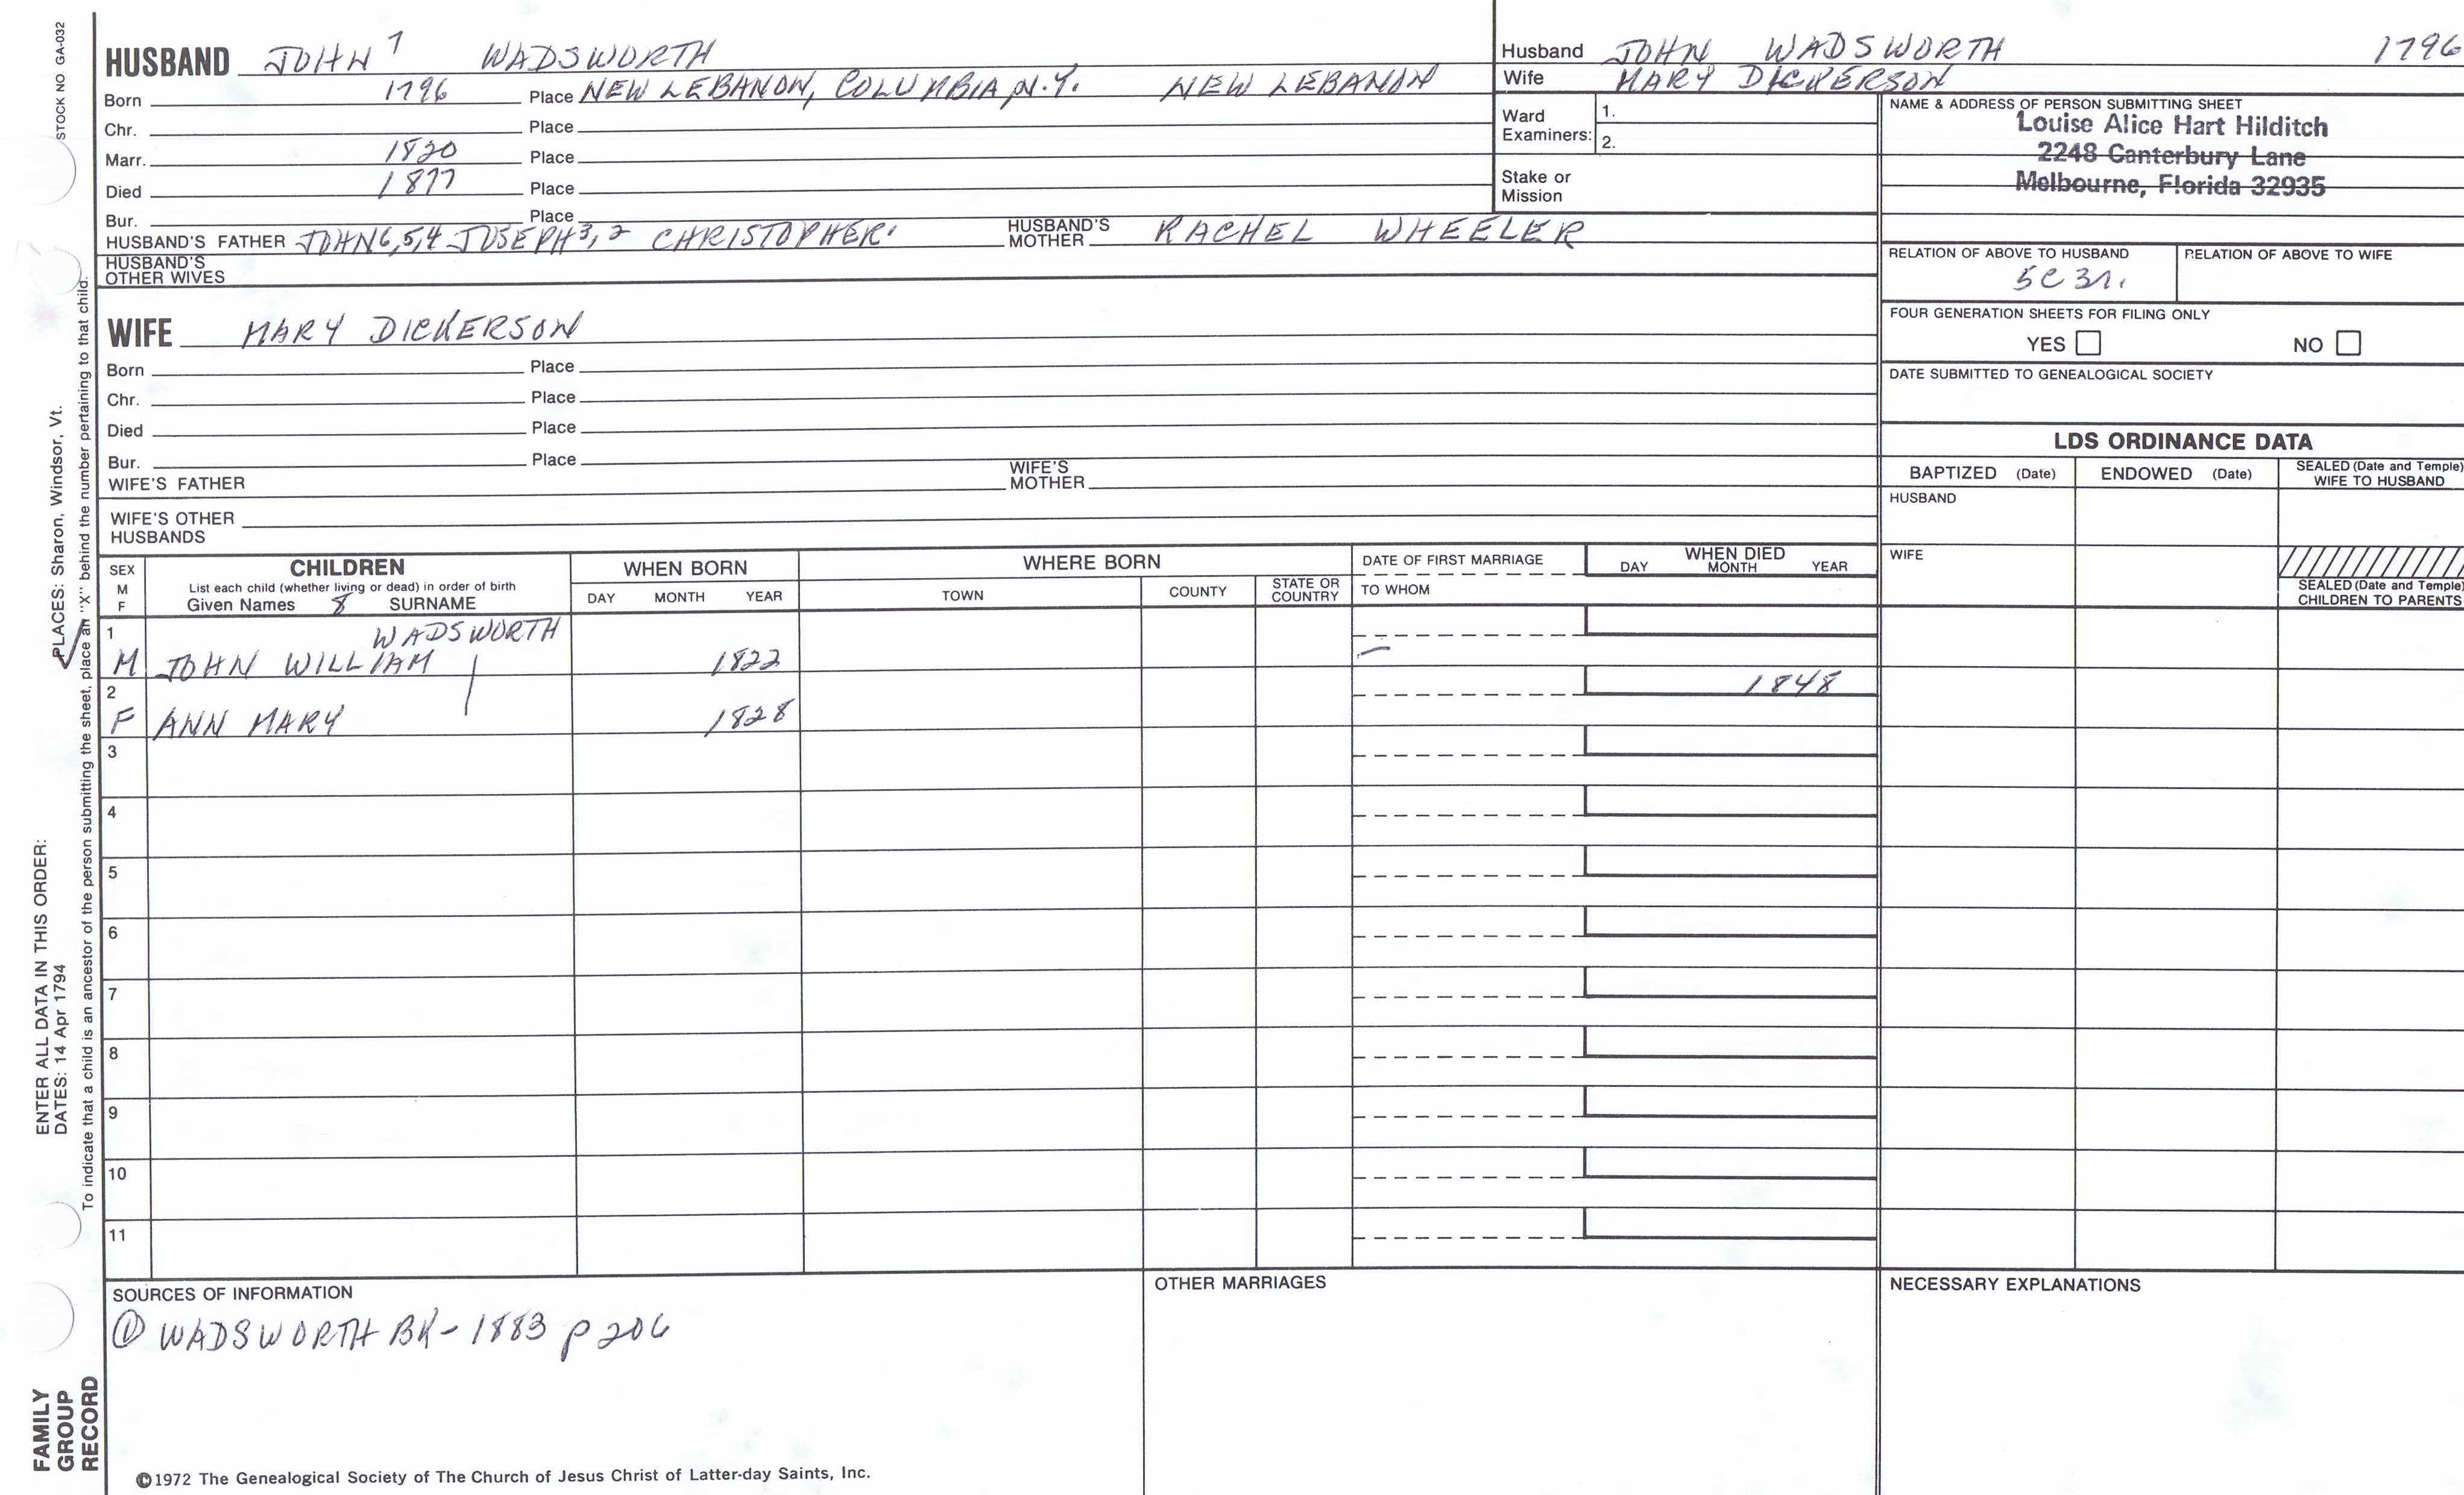 STOCK NO GA-032
HUSBAND JOHN 7 WADSWORTH
Born 1796 Place NEW LEBANON, COLUMBIA, N.Y. NEW LEBANON
Chr. Place
Marr. 1820 Place
Died 1877 Place
Bur. Place
HUSBAND'S FATHER JOHN 6,5,4 JOSEPH 3,2 CHRISTOPHER 1 HUSBAND'S MOTHER RACHEL WHEELER
HUSBAND'S OTHER WIVES
WIFE MARY DICKERSON
Born Place
Chr. Place
Died Place
Bur. Place
WIFE'S FATHER WIFE'S MOTHER
WIFE'S OTHER HUSBANDS
Husband JOHN WADSWORTH 1796
Wife MARY DICKERSON
Ward Examiners: 1.
2.
Stake or Mission
NAME & ADDRESS OF PERSON SUBMITTING SHEET
Louise Alice Hart Hilditch
2248 Canterbury Lane
Melbourne, Florida 32935
RELATION OF ABOVE TO HUSBAND RELATION OF ABOVE TO WIFE
5C 3r.
FOUR GENERATION SHEETS FOR FILING ONLY
YES NO
DATE SUBMITTED TO GENEALOGICAL SOCIETY
LDS ORDINANCE DATA
BAPTIZED (Date) ENDOWED (Date) SEALED (Date and Temple) WIFE TO HUSBAND
HUSBAND
WIFE
SEALED (Date and Temple) CHILDREN TO PARENTS
SEX M F
CHILDREN
List each child (whether living or dead) in order of birth
Given Names 8 SURNAME
WHEN BORN
DAY MONTH YEAR
WHERE BORN
TOWN COUNTY STATE OR COUNTRY
DATE OF FIRST MARRIAGE
TO WHOM
WHEN DIED
DAY MONTH YEAR
1 WADSWORTH
M JOHN WILLIAM | 1822 —
2 1848
F ANN MARY 1828
3
4
5
6
7
8
9
10
11
SOURCES OF INFORMATION
① WADSWORTH BK - 1883 p 206
OTHER MARRIAGES
NECESSARY EXPLANATIONS
©1972 The Genealogical Society of The Church of Jesus Christ of Latter-day Saints, Inc.
ENTER ALL DATA IN THIS ORDER:
DATES: 14 Apr 1794 PLACES: Sharon, Windsor, Vt.
To indicate that a child is an ancestor of the person submitting the sheet, place an "X" behind the number pertaining to that child.
FAMILY
GROUP
RECORD